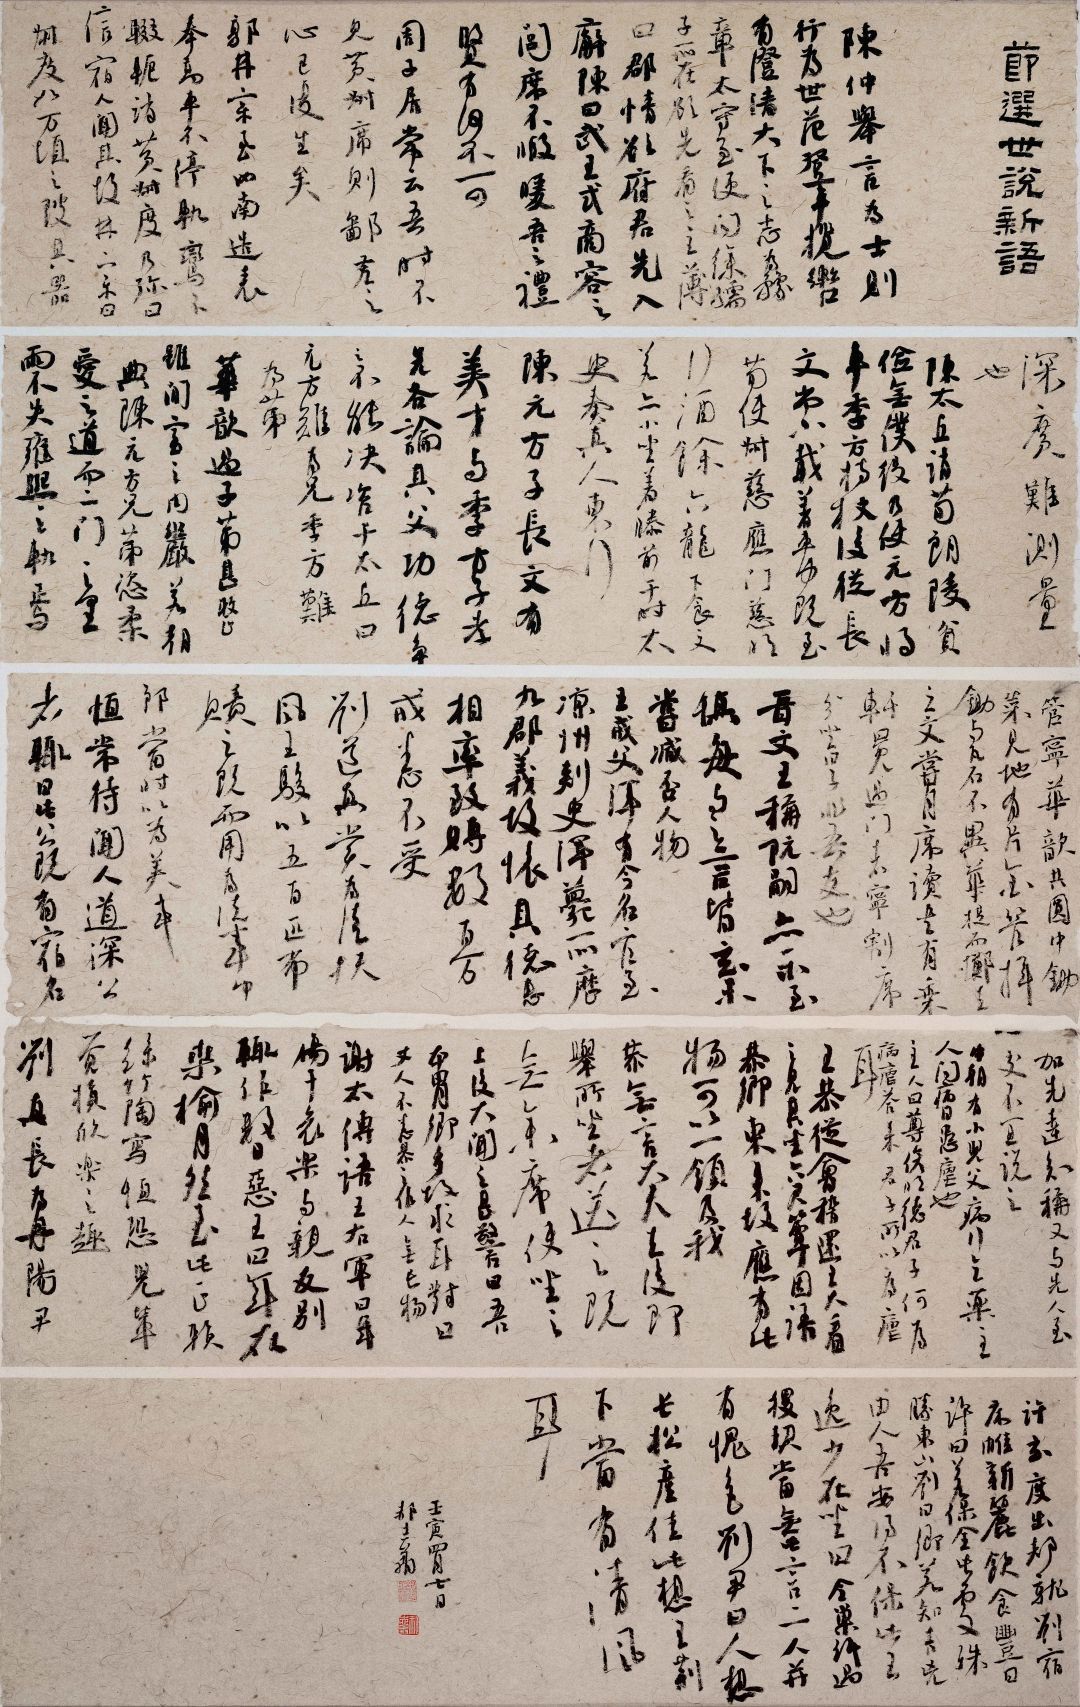 節選世說新語
陳仲舉言為士則
行為世范登車攬轡
有澄清天下之志為豫
章太守至便問徐孺
子所在欲先看之主薄
曰郡情欲府君先入
廨陳曰武王式商容之
閭席不暇暖吾之禮
賢有何不可
周子居常云吾時不
見黃叔度則鄙吝之
心已復生矣
郭林宗至汝南造袁
奉高車不停軌鸞不
輟軛詣黃叔度乃彌日
信宿人問其故林宗曰
叔度汪汪如萬頃之陂其器
深廣難測量
也
陳太丘詣荀朗陵貧
儉無僕役乃使元方將
車季方持杖後從長
文尚小載著車中既至
荀使叔慈應門慈明
行酒餘六龍下食文
若亦小坐著膝前于時太
史奏真人東行
陳元方子長文有
英才與季方子孝
先各論其父功德爭
之不能決咨于太丘曰
元方難為兄季方難
為弟
華歆遇子弟甚整
雖閒室之內嚴若朝
典陳元方兄弟恣柔
愛之道而二門之里
兩不失雍熙之軌焉
管寧華歆共園中鋤
菜見地有片金管揮
鋤與瓦石不異華捉而擲去
之又嘗同席讀書有乘
軒冕過門者寧割席
分坐曰子非吾友也
晉文王稱阮嗣宗至
慎每與之言皆玄遠未
嘗臧否人物
王戎父渾有令名官至
涼州刺史渾薨所歷
九郡義故懷其德惠
相率致賻數百萬
戎悉不受
劉道真嘗為徒扶
風王駿以五百匹布
贖之既而用為從事中
郎當時以為美事
恒常侍聞人道深公
者輒曰此公既有宿名
加先達知稱又與先人至
交不宜說之
中朝有小兒父病行乞藥主
人問病曰患瘧也
主人曰尊侯明德君子何為
病瘧答曰來病君子所以為瘧
耳
王恭從會稽還王大看
之見其坐六尺簟因語
恭卿東來故應有此
物可以一領及我
恭無言大去後即
舉所坐者送之既
無余席便坐
上後大聞之甚驚曰吾
本謂卿多故求耳對曰
丈人不悉恭恭作人無長物
謝太傅語王右軍曰中年
傷于哀樂與親友別
輒作數日惡王曰年在
桑榆自然至此正賴
絲竹陶寫恒恐兒輩
覺損欣樂之趣
劉真長為丹陽尹
許玄度出都就劉宿
床帷新麗飲食豐甘
許曰若保全此處殊
勝東山劉曰卿若知吉凶
由人吾安得不保此王
逸少在坐曰令巢許遇
稷契當無此言二人并
有愧色劉尹曰人想
王荊產佳此想長松
下當有清風
耳
壬寅
七日